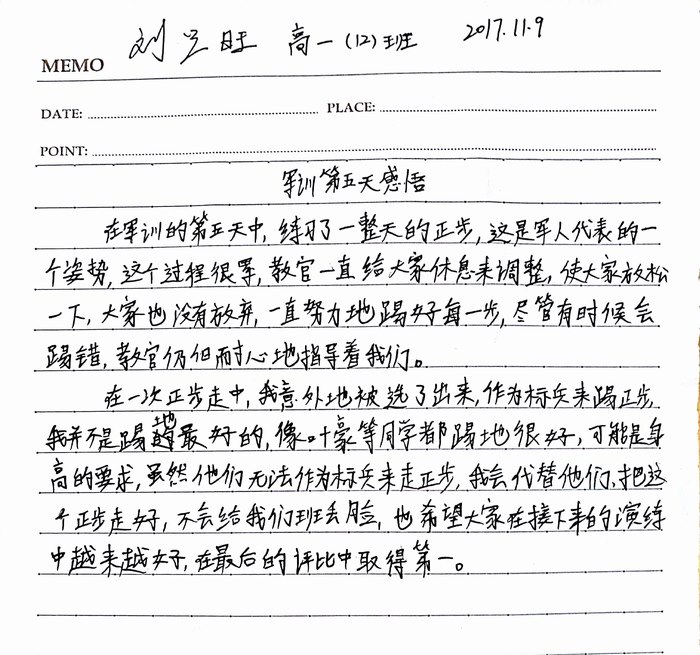 刘兰旺 高一(12)班 2017.11.9
MEMO
DATE: PLACE:
POINT:
军训第五天感悟
在军训的第五天中,练习了一整天的正步,这是军人代表的一
个姿势,这个过程很累,教官一直给大家休息来调整,使大家放松
一下,大家也没有放弃,一直努力地踢好每一步,尽管有时候会
踢错,教官仍旧耐心地指导着我们。
在一次正步走中,我意外地被选了出来,作为标兵来踢正步,
我并不是踢地最好的,像叶豪等同学都踢地很好,可能是身
高的要求,虽然他们无法作为标兵来走正步,我会代替他们,把这
个正步走好,不会给我们班丢脸,也希望大家在接下来的演练
中越来越好,在最后的评比中取得第一。